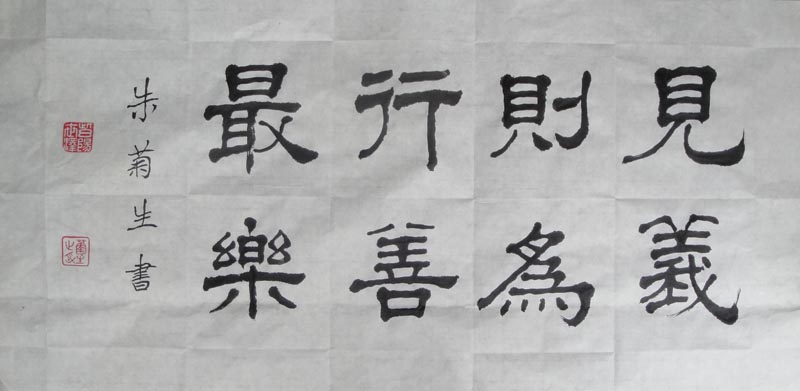 見義
則為
行善
最樂
朱菊生書